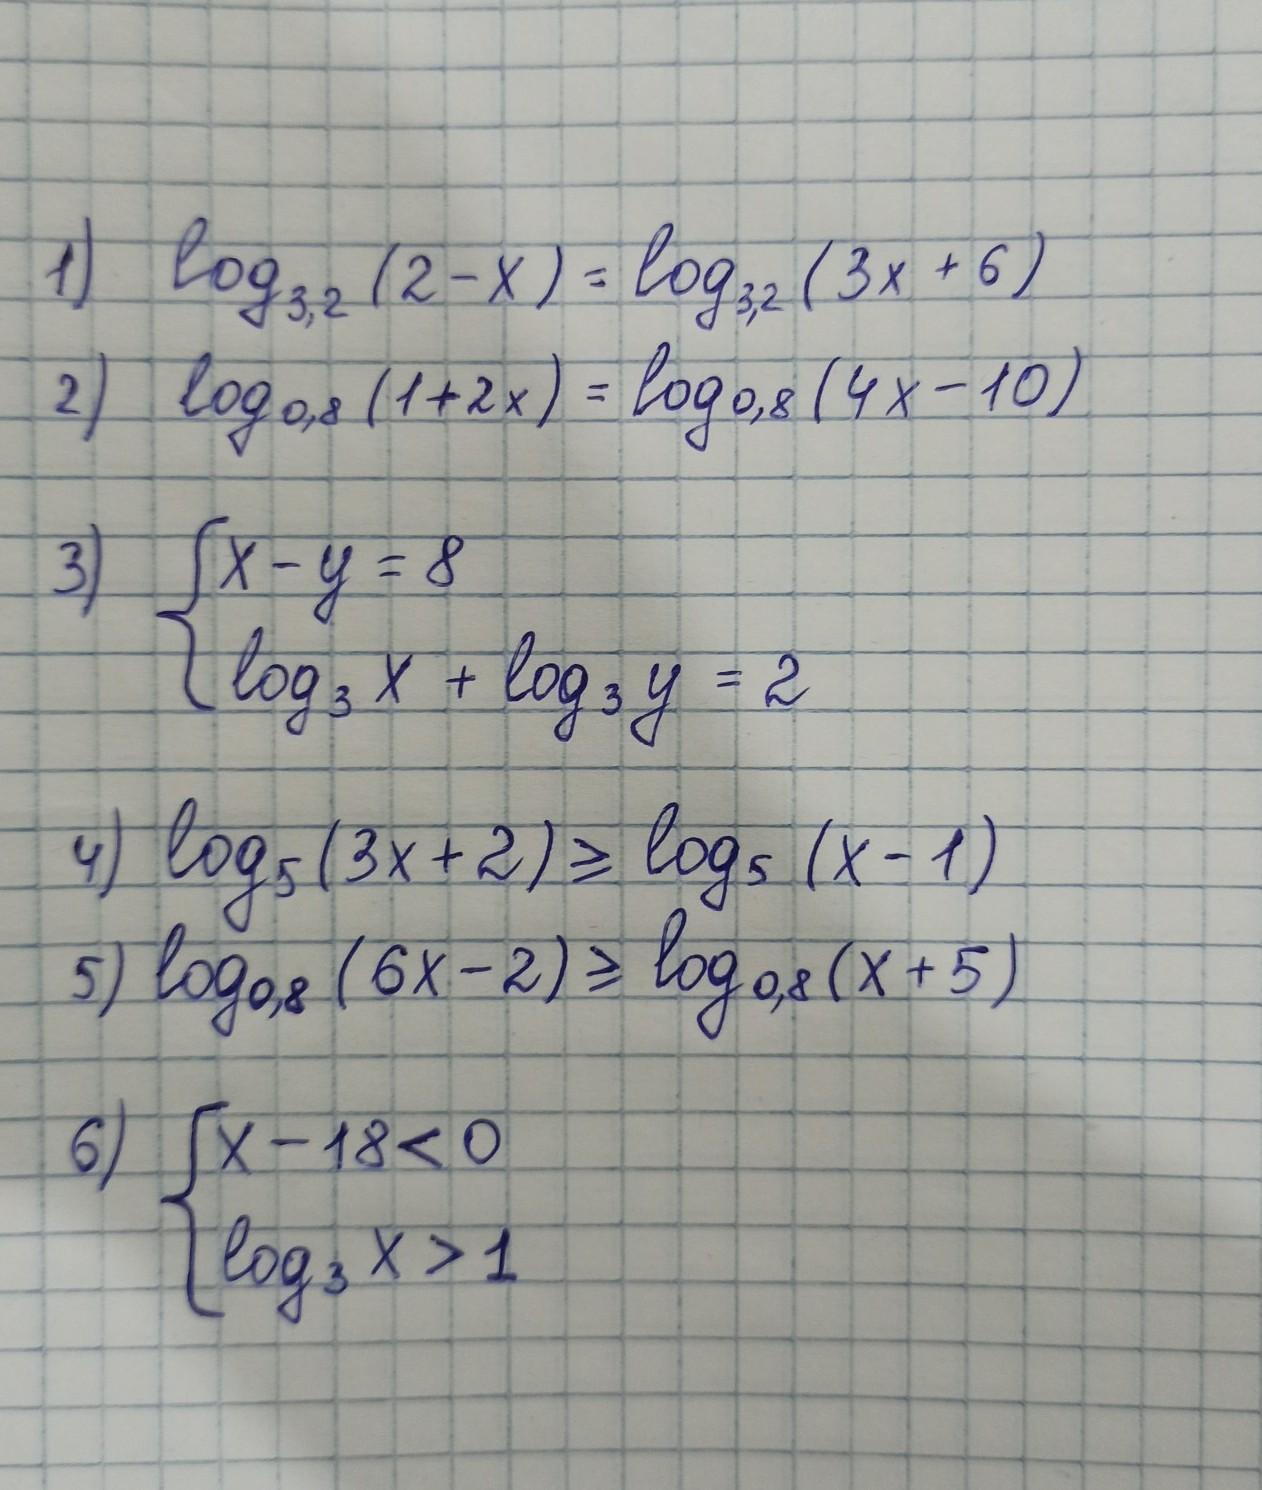 1) log₃,₂ (2 - x) = log₃,₂ (3x + 6)
2) log₀,₈ (1 + 2x) = log₀,₈ (4x - 10)
3) { x - y = 8
log₃ x + log₃ y = 2
4) log₅ (3x + 2) ≥ log₅ (x - 1)
5) log₀,₈ (6x - 2) ≥ log₀,₈ (x + 5)
6) { x - 18 < 0
log₃ x > 1